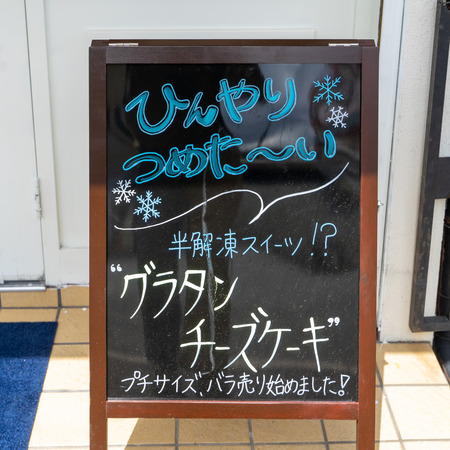 ひんやり
つめた〜い
半解凍スイーツ!?
“グラタン
チーズケーキ”
プチサイズ、バラ売り始めました!